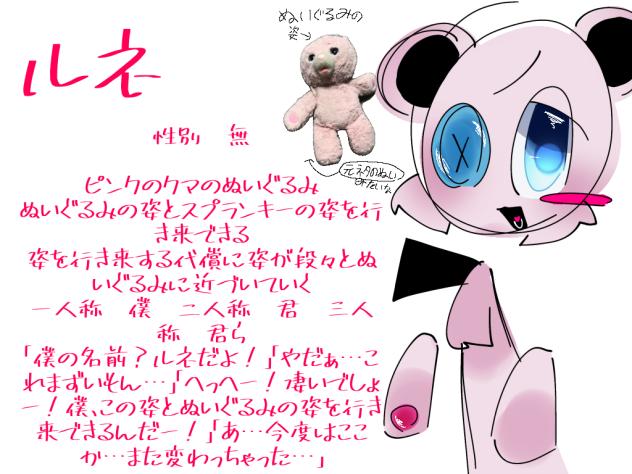 ぬいぐるみの
姿→
ルネ
性別 無
元ネタのぬい
みたいな
ピンクのクマのぬいぐるみ
ぬいぐるみの姿とスプランキーの姿を行
き来できる
姿を行き来する代償に姿が段々とぬ
いぐるみに近づいていく
一人称 僕 二人称 君 三人
称 君ら
「僕の名前?ルネだよ!」「やだぁ…こ
れまずいそん…」「へっへー!凄いでしょ
ー!僕、この姿とぬいぐるみの姿を行き
来できるんだー!」「あ…今度はここ
か…また変わっちゃった…」